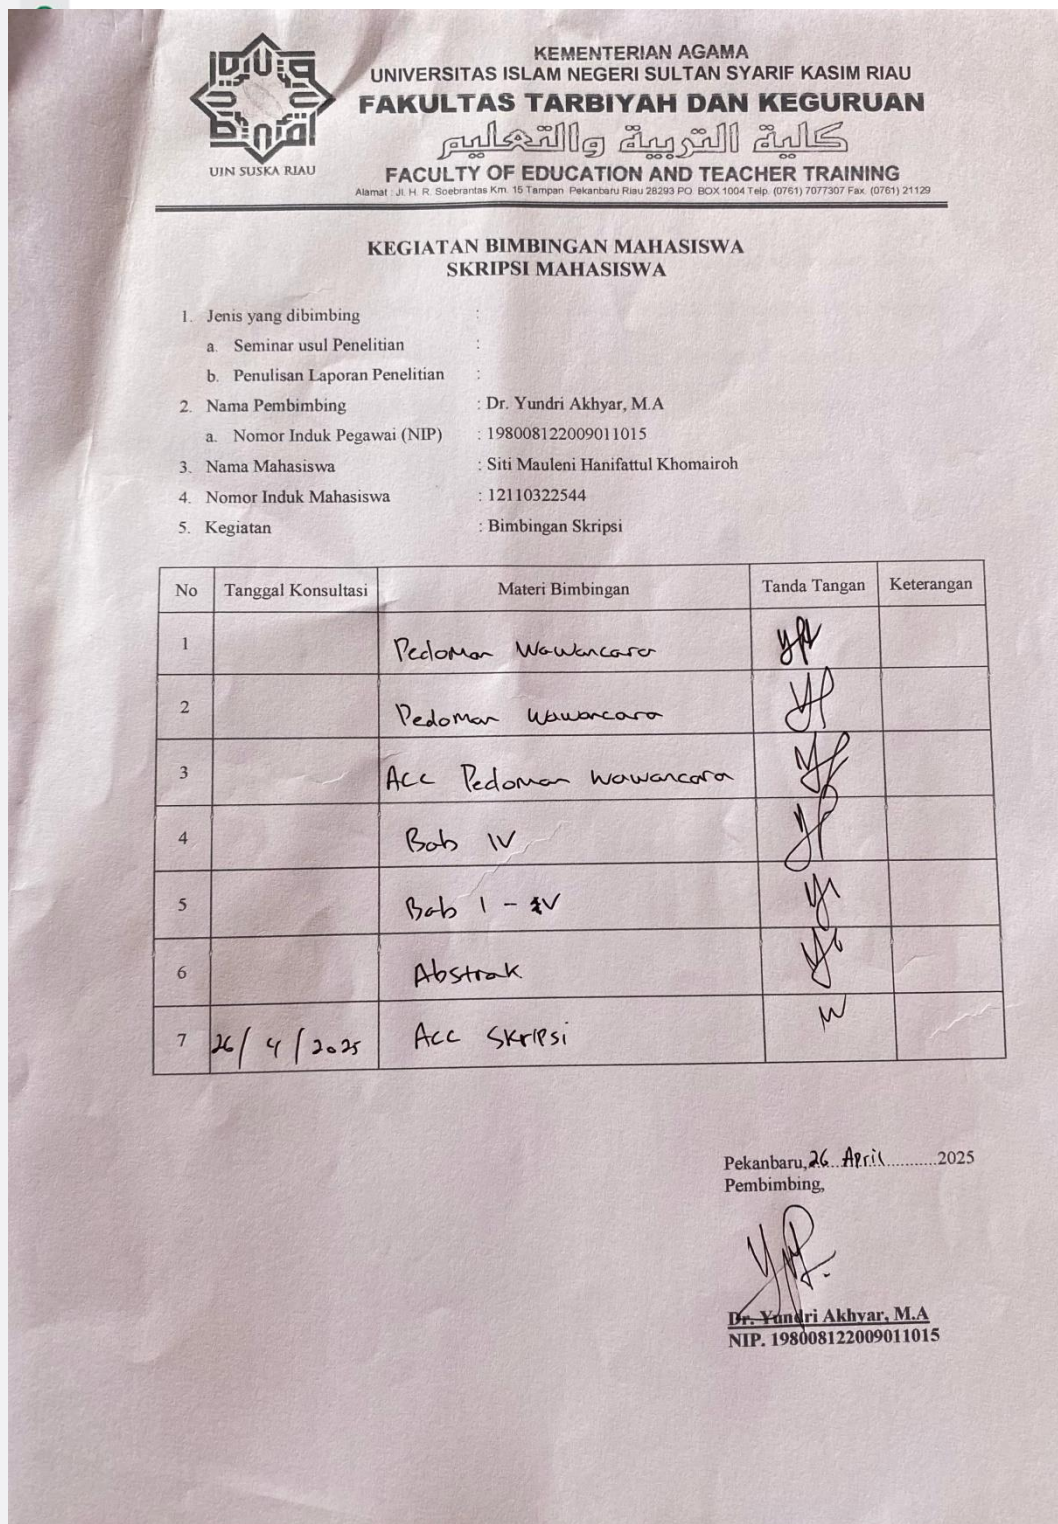 KEMENTERIAN AGAMA
UNIVERSITAS ISLAM NEGERI SULTAN SYARIF KASIM RIAU
FAKULTAS TARBIYAH DAN KEGURUAN
كلية التربية والتعليم
FACULTY OF EDUCATION AND TEACHER TRAINING
Alamat : Jl. H. R. Soebrantas Km. 15 Tampan Pekanbaru Riau 28293 PO. BOX 1004 Telp. (0761) 7077307 Fax. (0761) 21129
UIN SUSKA RIAU
KEGIATAN BIMBINGAN MAHASISWA
SKRIPSI MAHASISWA
1. Jenis yang dibimbing :
a. Seminar usul Penelitian :
b. Penulisan Laporan Penelitian :
2. Nama Pembimbing : Dr. Yundri Akhyar, M.A
a. Nomor Induk Pegawai (NIP) : 198008122009011015
3. Nama Mahasiswa : Siti Mauleni Hanifattul Khomairoh
4. Nomor Induk Mahasiswa : 12110322544
5. Kegiatan : Bimbingan Skripsi
No Tanggal Konsultasi Materi Bimbingan Tanda Tangan Keterangan
1 Pedoman Wawancara
2 Pedoman Wawancara
3 Acc Pedoman Wawancara
4 Bab IV
5 Bab I - IV
6 Abstrak
7 26/4/2025 Acc Skripsi
Pekanbaru, 26 April...........2025
Pembimbing,
Dr. Yundri Akhyar, M.A
NIP. 198008122009011015